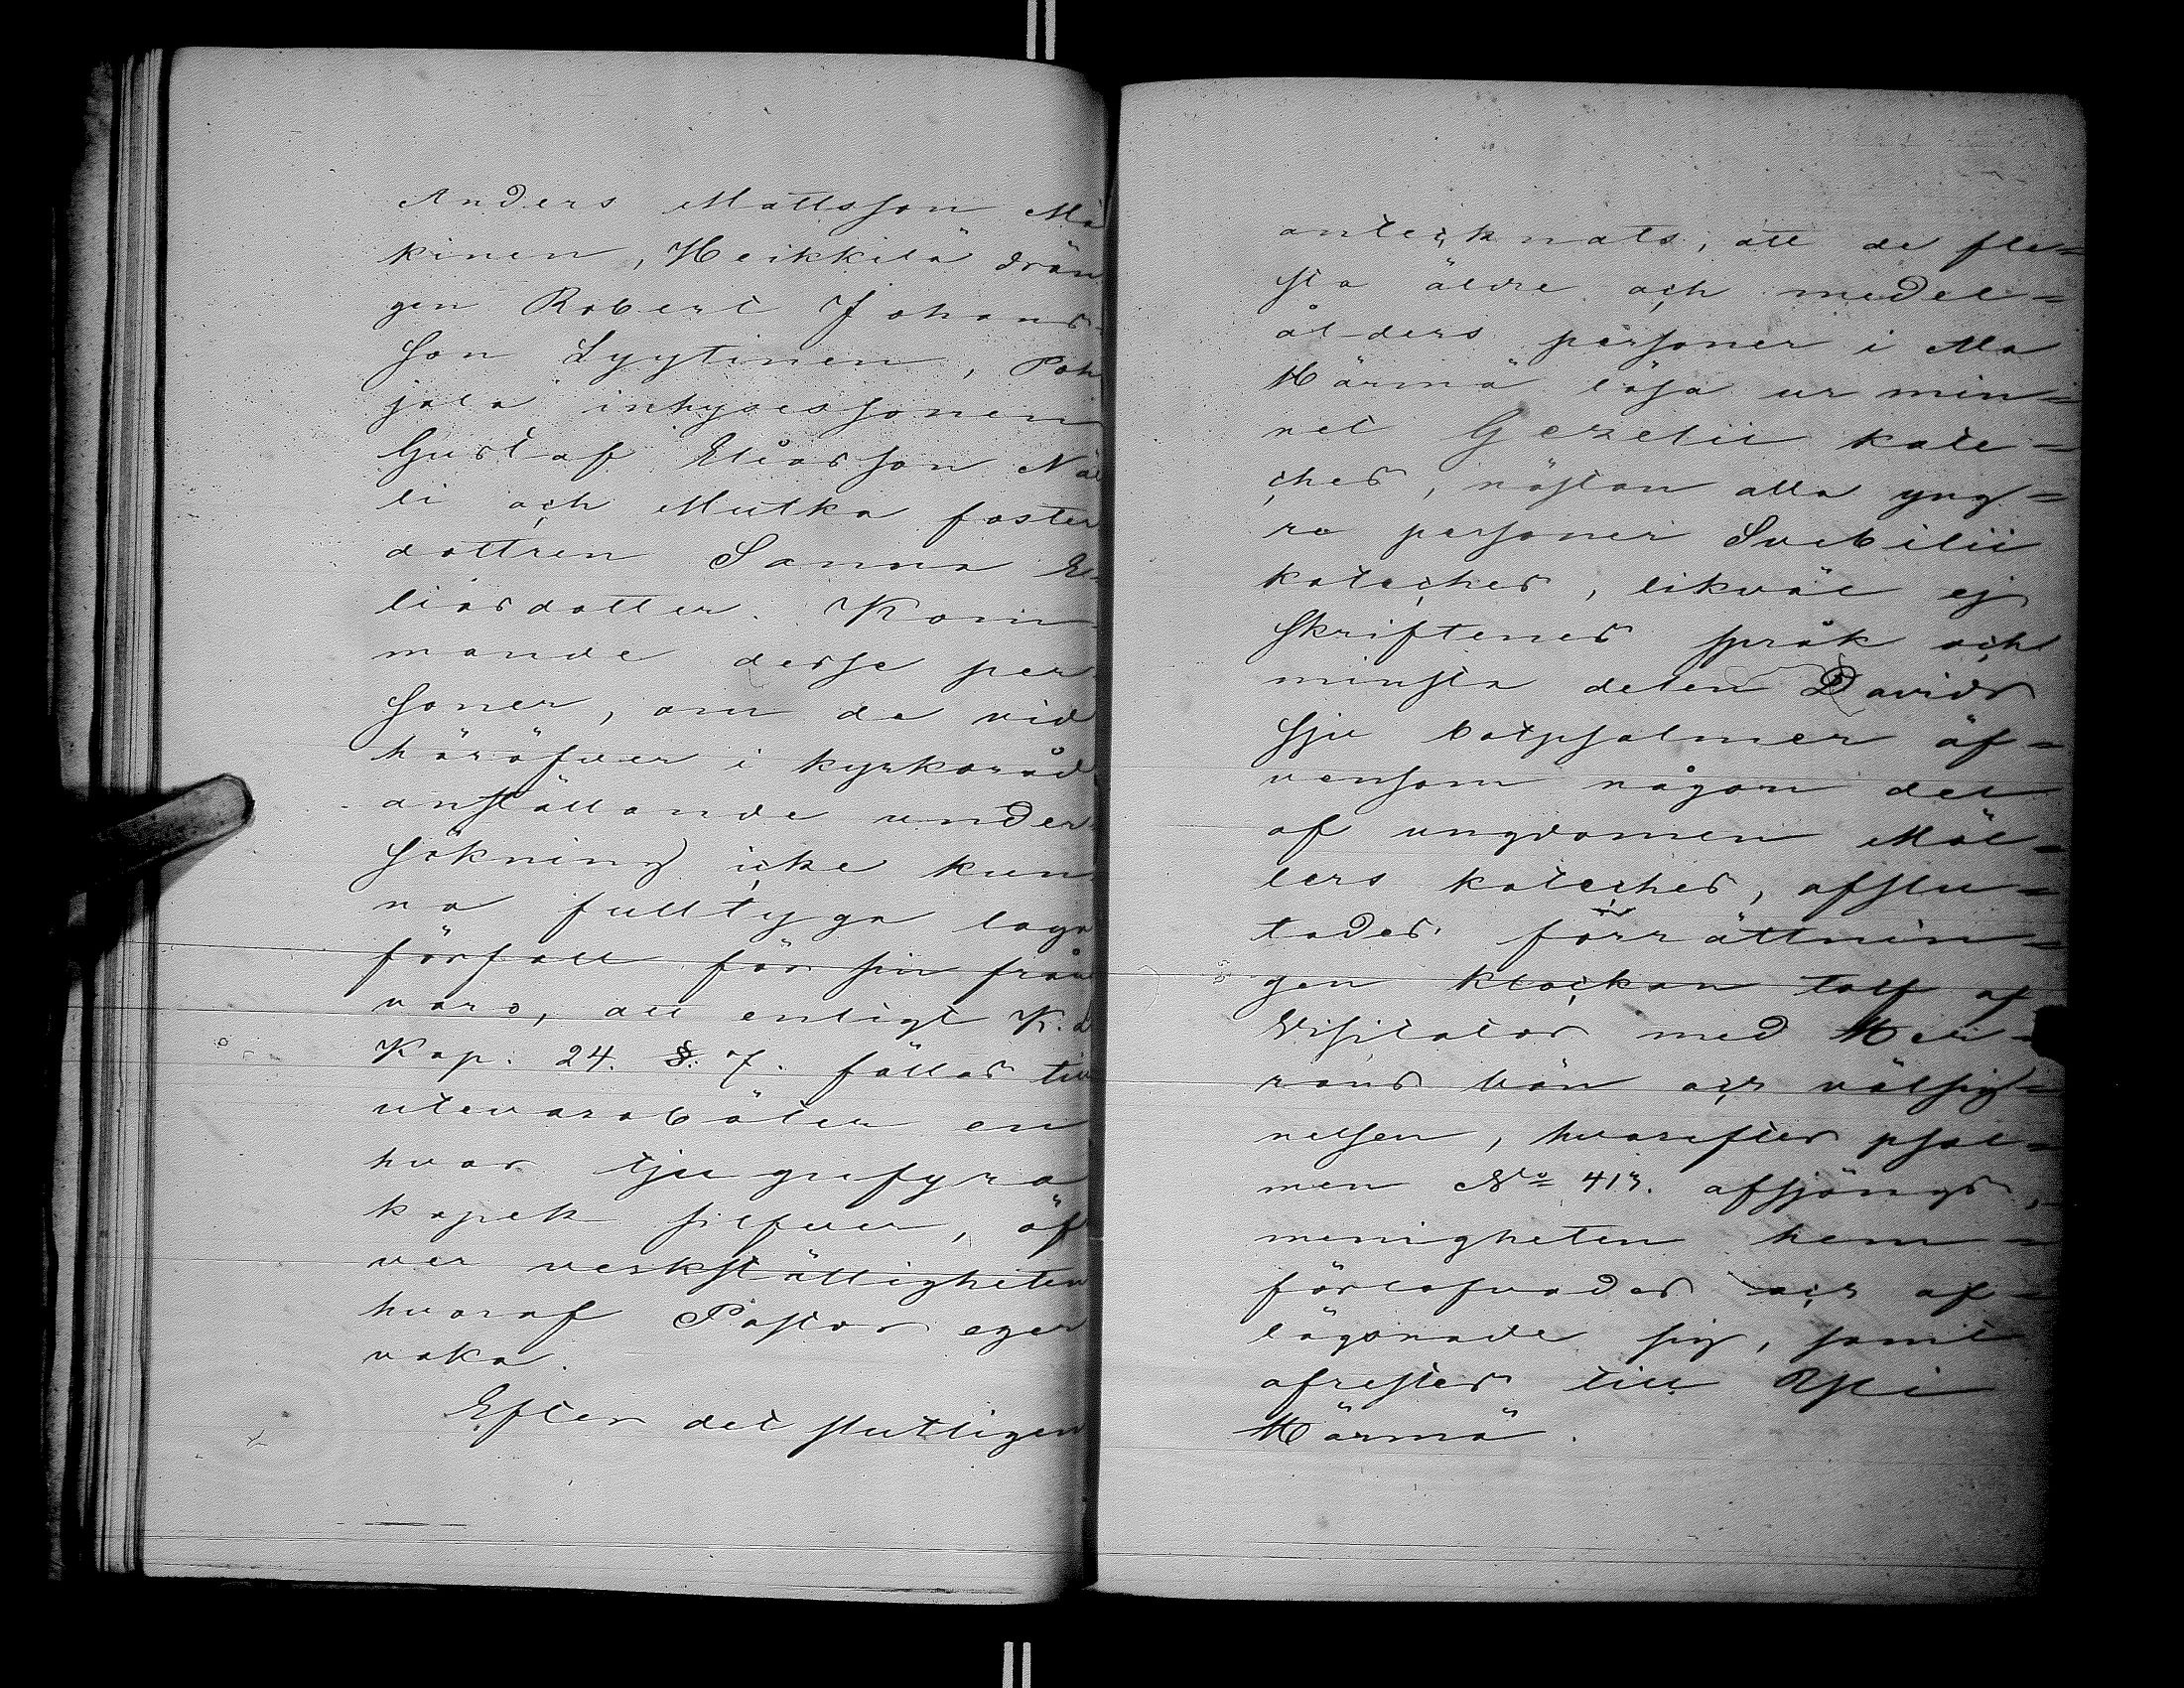 Anders Mattsson Mä
kinen, Heikkilä drän
gen Robert Johans-
son Lyytinen, Poh
jala inhysessonen
Gustaf Eliasson Näl
li och Mutka foster
dottren Sanna E-
liasdotter. Kom-
mande desse per-
soner, om de vid
häröfver i kyrkoråd
anställande under-
sökning icke kun-
na fulltyga laga
förfall för sin från
varo, att enligt K. L.
Kap. 24. §. 7. fällas till
utevaroböter en
hvar tjugufyra
kopek silfver, öf
ver verkställigheten
hvaraf Pastor eger
vaka.
Efter det slutligen
antecknats, att de fle=
sta äldre och medel=
ålders personer i Ala
Härmä läsa ur min=
net Gezelii kate=
ches, nästan alla yng=
re personer Svebilii
kateches, likväl ej
skriftenes språk och
minsta delen Davids
sju botpsalmer äf=
vensom någon del
af ungdomen Möl=
lers kateches, afslu=
tades förrättnin=
gen klockan tolf af
Visitator med Her=
rans bön och välsig=
nelsen, hvarefter psal=
men No 413. afsjöngs,
menigheten hem=
förlofvades och af=
lägsnade sig, samt
afrestes till Ylli
Härmä.